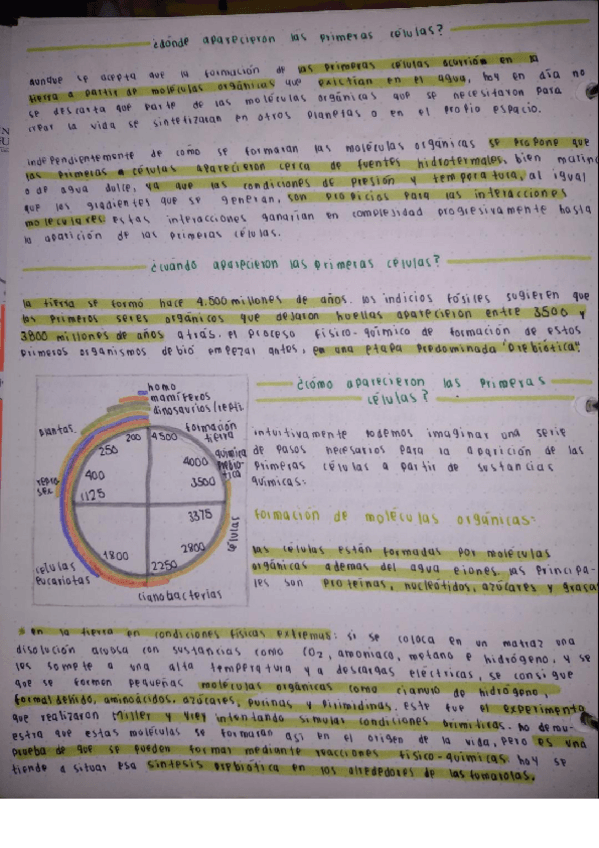 ¿dónde aparecieron las primeras células?
aunque se acepta que la formación de las primeras células ocurrión en la
tierra a partir de moléculas orgánicas que existían en el agua, hoy en día no
se descarta que parte de las moléculas orgánicas que se necesitaron para
crear la vida se sintetizaran en otros planetas o en el propio espacio.
independientemente de como se formaran las moléculas orgánicas se propone que
las primeras células aparecieron cerca de fuentes hidrotermales, bien marina
o de agua dulce, ya que las condiciones de presión y temperatura, al igual
que los gradientes que se generan, son propicios para las interacciones
moleculares. Estas interacciones ganarían en complejidad progresivamente hasta
la aparición de las primeras células.
¿cuándo aparecieron las primeras células?
la tierra se formó hace 4.500 millones de años. los indicios fósiles sugieren que
los primeros seres orgánicos que dejaron huellas aparecieron entre 3500 y
3800 millones de años atrás. el proceso físico-químico de formación de estos
primeros organismos debió empezar antes, en una etapa predominada "prebiótica".
homo
mamíferos
dinosaurios/repti.
plantas
formación
tierra
200 4500
250
4000
química
prebió-
tica
400
3500
repro
sex
1125
3375
células
1800
2800
2250
células
eucariotas
cianobacterias
¿cómo aparecieron las primeras
células?
intuitivamente podemos imaginar una serie
de pasos necesarios para la aparición de las
primeras células a partir de sustancias
químicas:
formación de moléculas orgánicas:
las células están formadas por moléculas
orgánicas ademas del agua e iones. las principa-
les son proteínas, nucleótidos, azúcares y grasas
en la tierra en condiciones físicas extremas: si se coloca en un matraz una
disolución acuosa con sustancias como CO2, amoniaco, metano e hidrógeno, y se
los somete a una alta temperatura y a descargas eléctricas, se consigue
que se formen pequeñas moléculas orgánicas como cianuro de hidrógeno,
formaldehido, aminoácidos, azúcares, purinas y pirimidinas. Este fue el experimento
que realizaran Miller y Urey intentando simular condiciones primitivas. no demu-
estra que estas moléculas se formaran así en el origen de la vida, pero es una
prueba de que se pueden formar mediante reacciones físico-químicas. hoy se
tiende a situar esa síntesis prebiótica en los alrededores de las fumarolas.